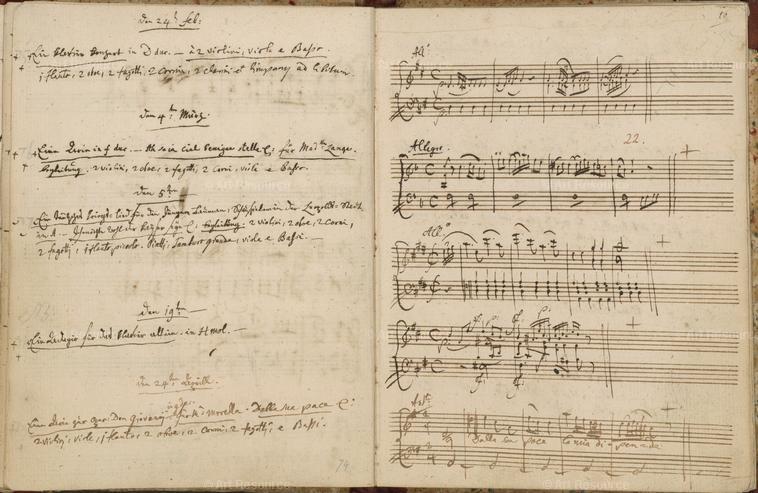 den 24t feb:
Ein klavier konzert in D dur. — à 2 violini, viola e Basso.
1 flauto, 2 oboe, 2 fagotti, 2 Corni, 2 clarini et timpany ad libitum.
den 4t März.
Eine Aria in f dur. — Ah se in ciel benigne stelle &: für Mad:me Lange.
begleitung. 2 violini, 2 oboe, 2 fagotti, 2 corni, viole e Basso.
den 5t
Ein teutsches kriegs-lied für den jungen Baumann, Schauspieler in der Leopold-Stadt.
in A. — Ich möchte wohl der Kayser seyn &: begleitung. 2 violini, 2 oboe, 2 Corni,
2 fagotti, 1 flauto piccolo. Piatti, Tamburo grande, viole e Bassi. —
den 19t: —
Ein Adagio für das klavier allein. in H mol. —
den 24t Aprill.
Eine Aria zur oper Don Giovanni. für Morella. Dalla sua pace &:
2 violini, viole, 1 flauto, 2 oboe, 2 Corni, 2 fagotti e Bassi.
74
10
All:
22.
Allegro.
All:
And:te
Dalla sua pace la mia dipende
© Art Resource